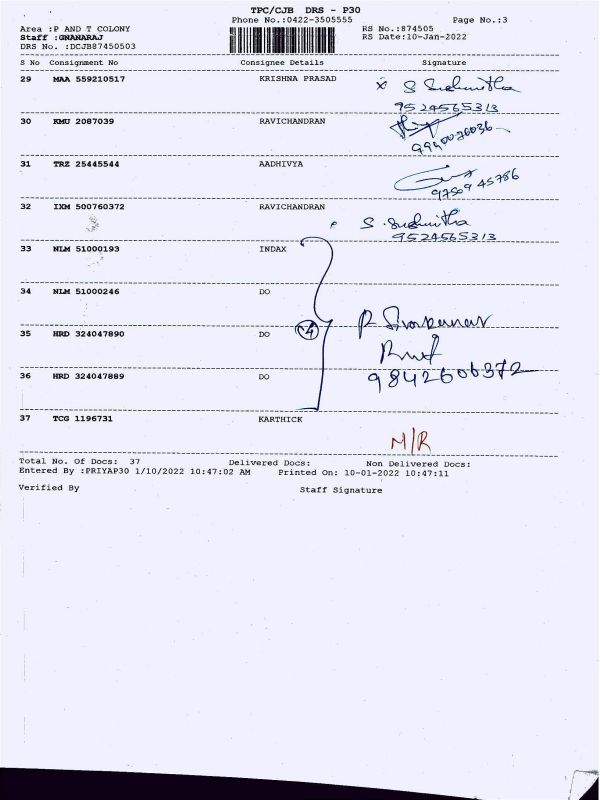 TPC/CJB DRS - P30
Phone No.:0422-3505555 Page No.:3
Area :P AND T COLONY RS No.:874505
Staff :GNANARAJ RS Date:10-Jan-2022
DRS No. :DCJB87450503
S No Consignment No Consignee Details Signature
29 MAA 559210517 KRISHNA PRASAD x S Sushmitha
9524565313
30 KMU 2087039 RAVICHANDRAN
9940070036
31 TRZ 25445544 AADHIVYA
9750945786
32 IXM 500760372 RAVICHANDRAN S. Sushmitha
9524565313
33 NLM 51000193 INDAX
34 NLM 51000246 DO
35 HRD 324047890 DO 4
36 HRD 324047889 DO
9842606372
37 TCG 1196731 KARTHICK
N/R
Total No. Of Docs: 37 Delivered Docs: Non Delivered Docs:
Entered By :PRIYAP30 1/10/2022 10:47:02 AM Printed On: 10-01-2022 10:47:11
Verified By Staff Signature